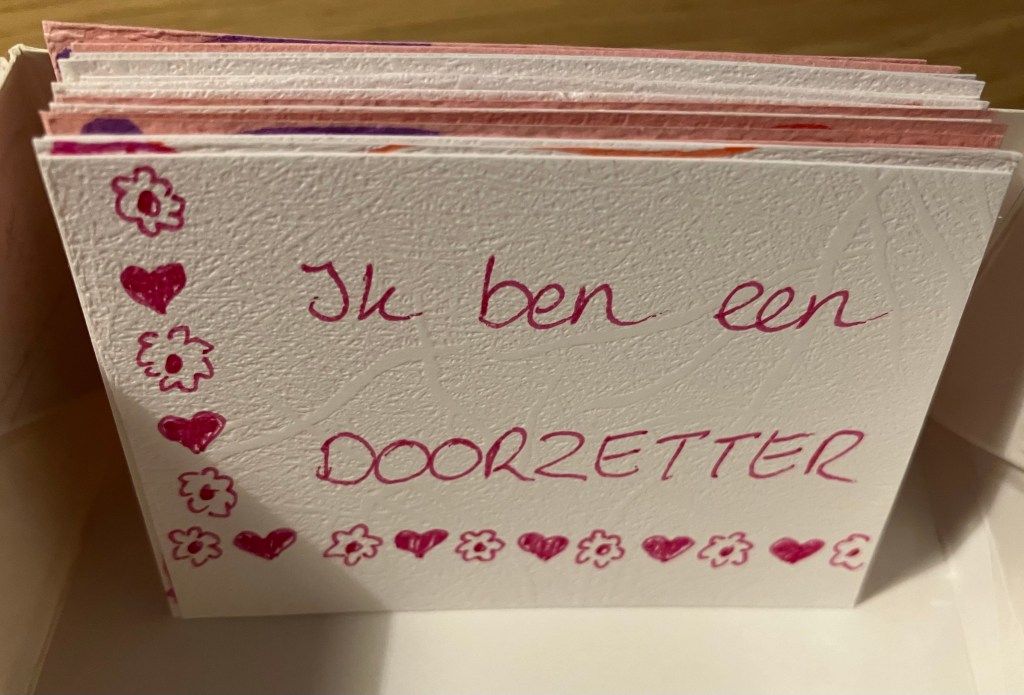 Ik ben een
DOORZETTER